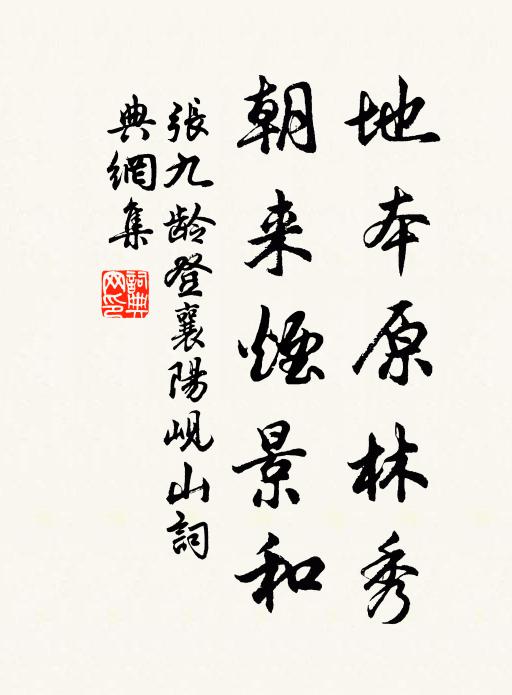 地本原林秀
朝来煙景和
張九龄登襄陽峴山詞
典網集
詞典网印